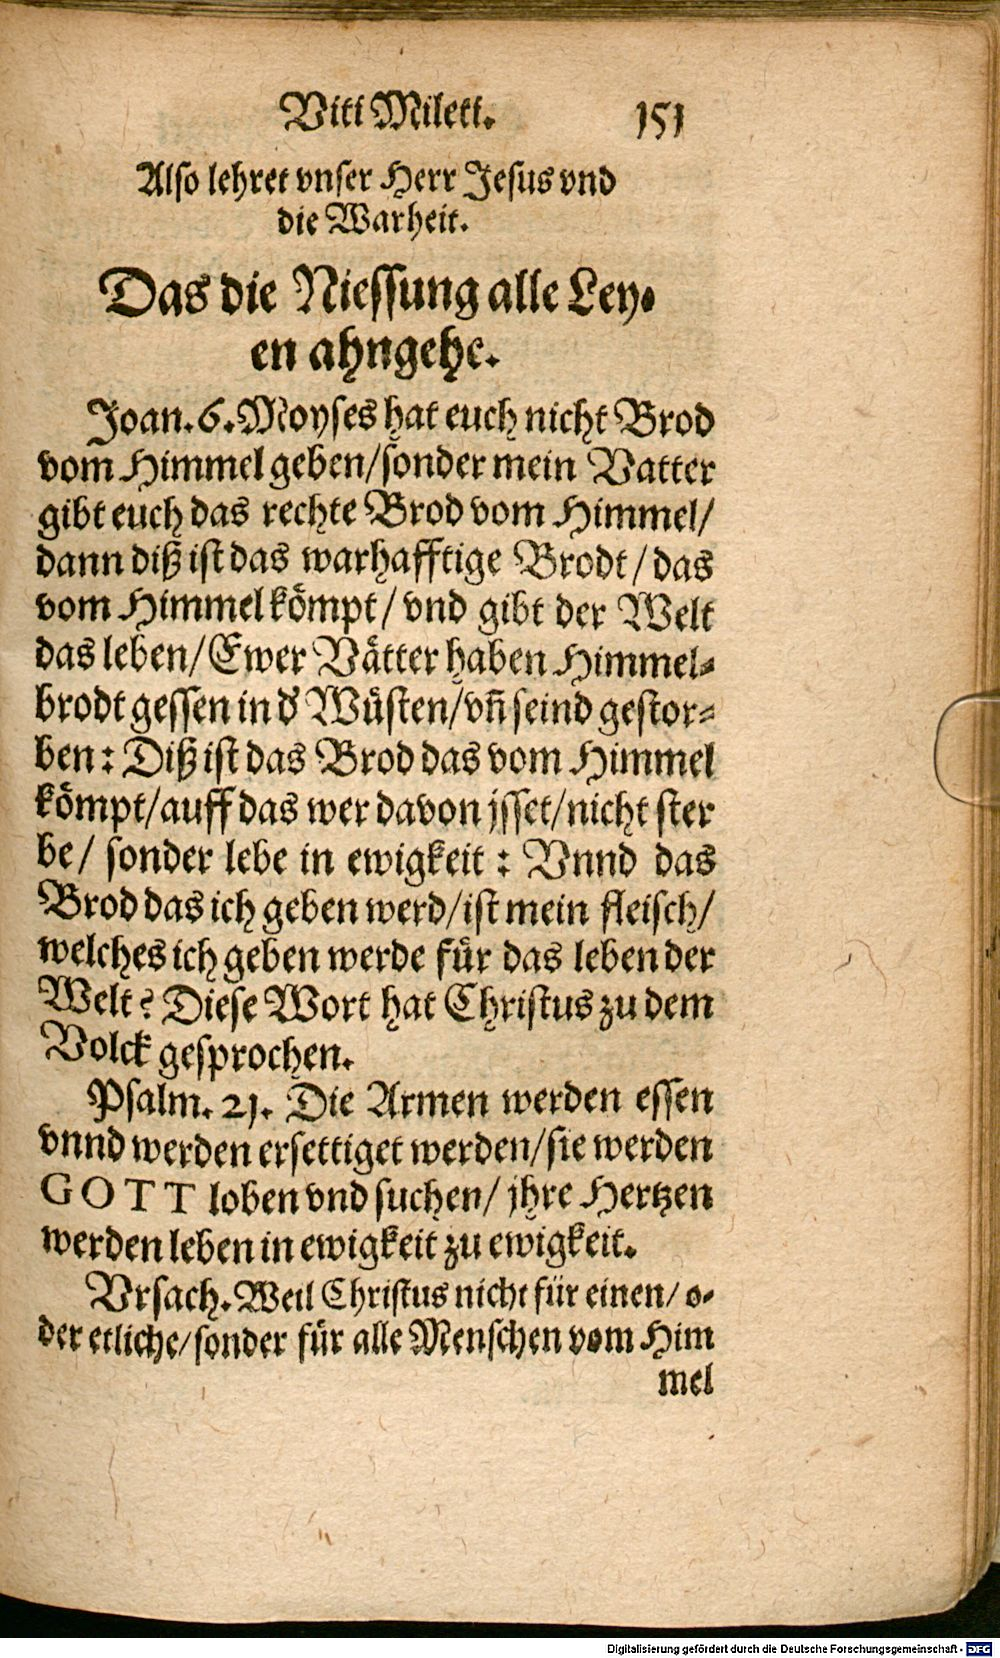 Viti Mileti. 151
Also lehret vnser Herr Jesus vnd
die Warheit.
Das die Niessung alle Ley-
en ahngehe.
Joan. 6. Moyses hat euch nicht Brod
vom Himmel geben/ sonder mein Vatter
gibt euch das rechte Brod vom Himmel/
dann diß ist das warhafftige Brodt/ das
vom Himmel kömpt/ vnd gibt der Welt
das leben/ Ewer Vätter haben Himmel-
brodt gessen in d' Wüsten/ vñ seind gestor-
ben: Diß ist das Brod das vom Himmel
kömpt/ auff das wer davon jsset/ nicht ster
be/ sonder lebe in ewigkeit: Vnnd das
Brod das ich geben werd/ ist mein fleisch/
welches ich geben werde für das leben der
Welt? Diese Wort hat Christus zu dem
Volck gesprochen.
Psalm. 21. Die Armen werden essen
vnnd werden ersettiget werden/ sie werden
GOTT loben vnd suchen/ jhre Hertzen
werden leben in ewigkeit zu ewigkeit.
Vrsach. Weil Christus nicht für einen/ o-
der etliche/ sonder für alle Menschen vom Him
mel
Digitalisierung gefördert durch die Deutsche Forschungsgemeinschaft - DFG